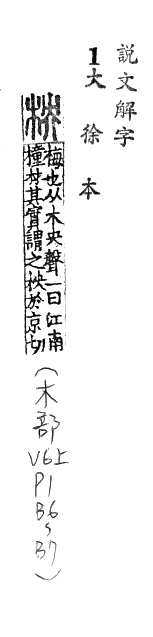 説文解字
1大徐本
柍
梅也从木央聲一曰江南
橦材其實謂之柍於京切
（木部
V6上
P1
B6
〜
B7）